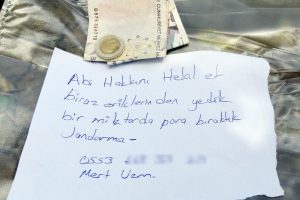 Abi Hakkını Helal et
biraz eriklerinden yedik
bir miktarda para bıraktık
Jandarma -
0553
Mert Uzm.